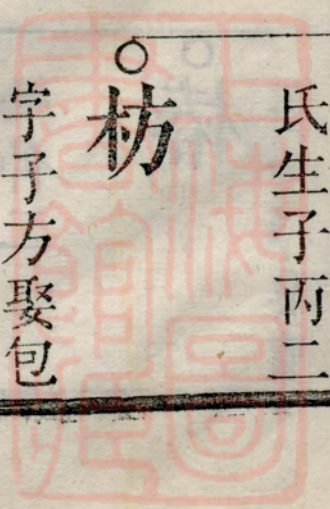 氏生子丙二
○枋
字子方娶包